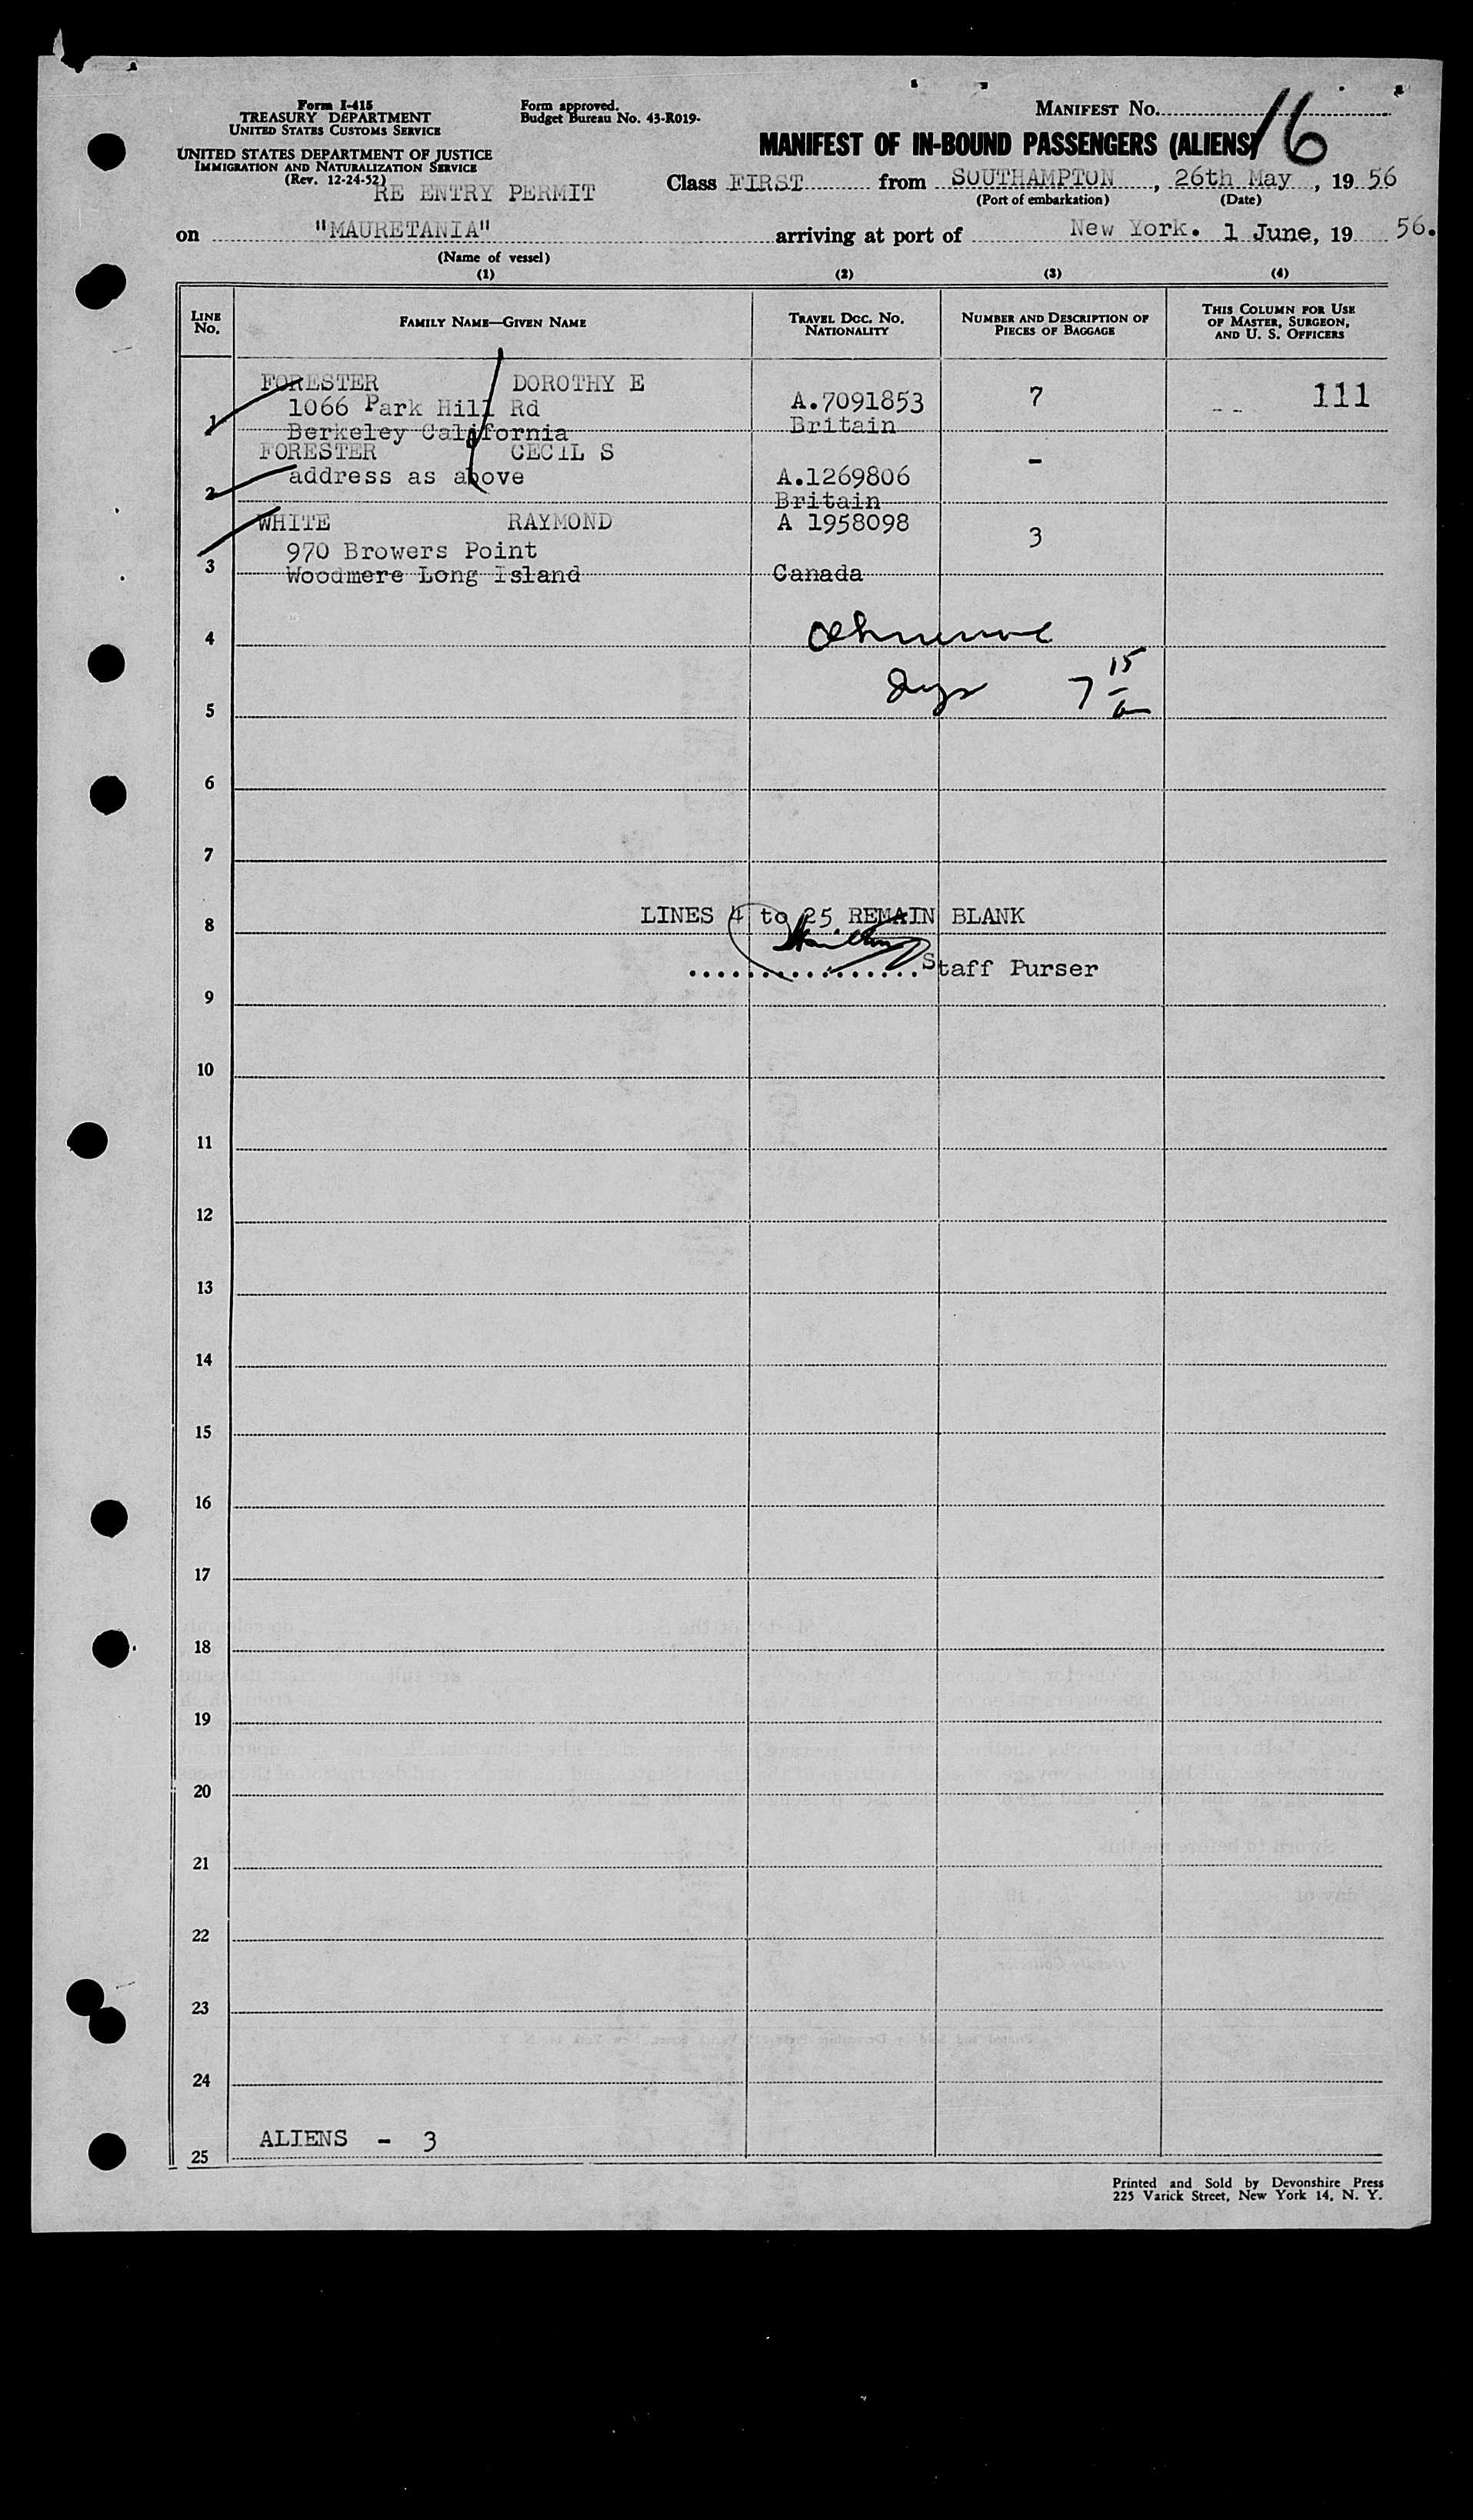 Form I-415
TREASURY DEPARTMENT
UNITED STATES CUSTOMS SERVICE
UNITED STATES DEPARTMENT OF JUSTICE
IMMIGRATION AND NATURALIZATION SERVICE
(Rev. 12-24-52)
RE ENTRY PERMIT
Form approved.
Budget Bureau No. 43-R019-
MANIFEST No.
16
MANIFEST OF IN-BOUND PASSENGERS (ALIENS)
Class FIRST from SOUTHAMPTON, 26th May, 1956
(Port of embarkation) (Date)
on "MAURETANIA" arriving at port of New York. 1 June, 19 56.
(Name of vessel)
(1) (2) (3) (4)
LINE No. FAMILY NAME—GIVEN NAME TRAVEL DOC. NO. NATIONALITY NUMBER AND DESCRIPTION OF PIECES OF BAGGAGE THIS COLUMN FOR USE OF MASTER, SURGEON, AND U. S. OFFICERS
FORESTER DOROTHY E
1066 Park Hill Rd A.7091853 7 111
1 Berkeley California Britain
FORESTER CECIL S -
address as above A.1269806
2 Britain
WHITE RAYMOND A 1958098
970 Browers Point 3
3 Woodmere Long Island Canada
4
5 7 15
6
7
LINES 4 to 25 REMAIN BLANK
8
................Staff Purser
9
10
11
12
13
14
15
16
17
18
19
20
21
22
23
24
ALIENS - 3
25
Printed and Sold by Devonshire Press
225 Varick Street, New York 14, N. Y.